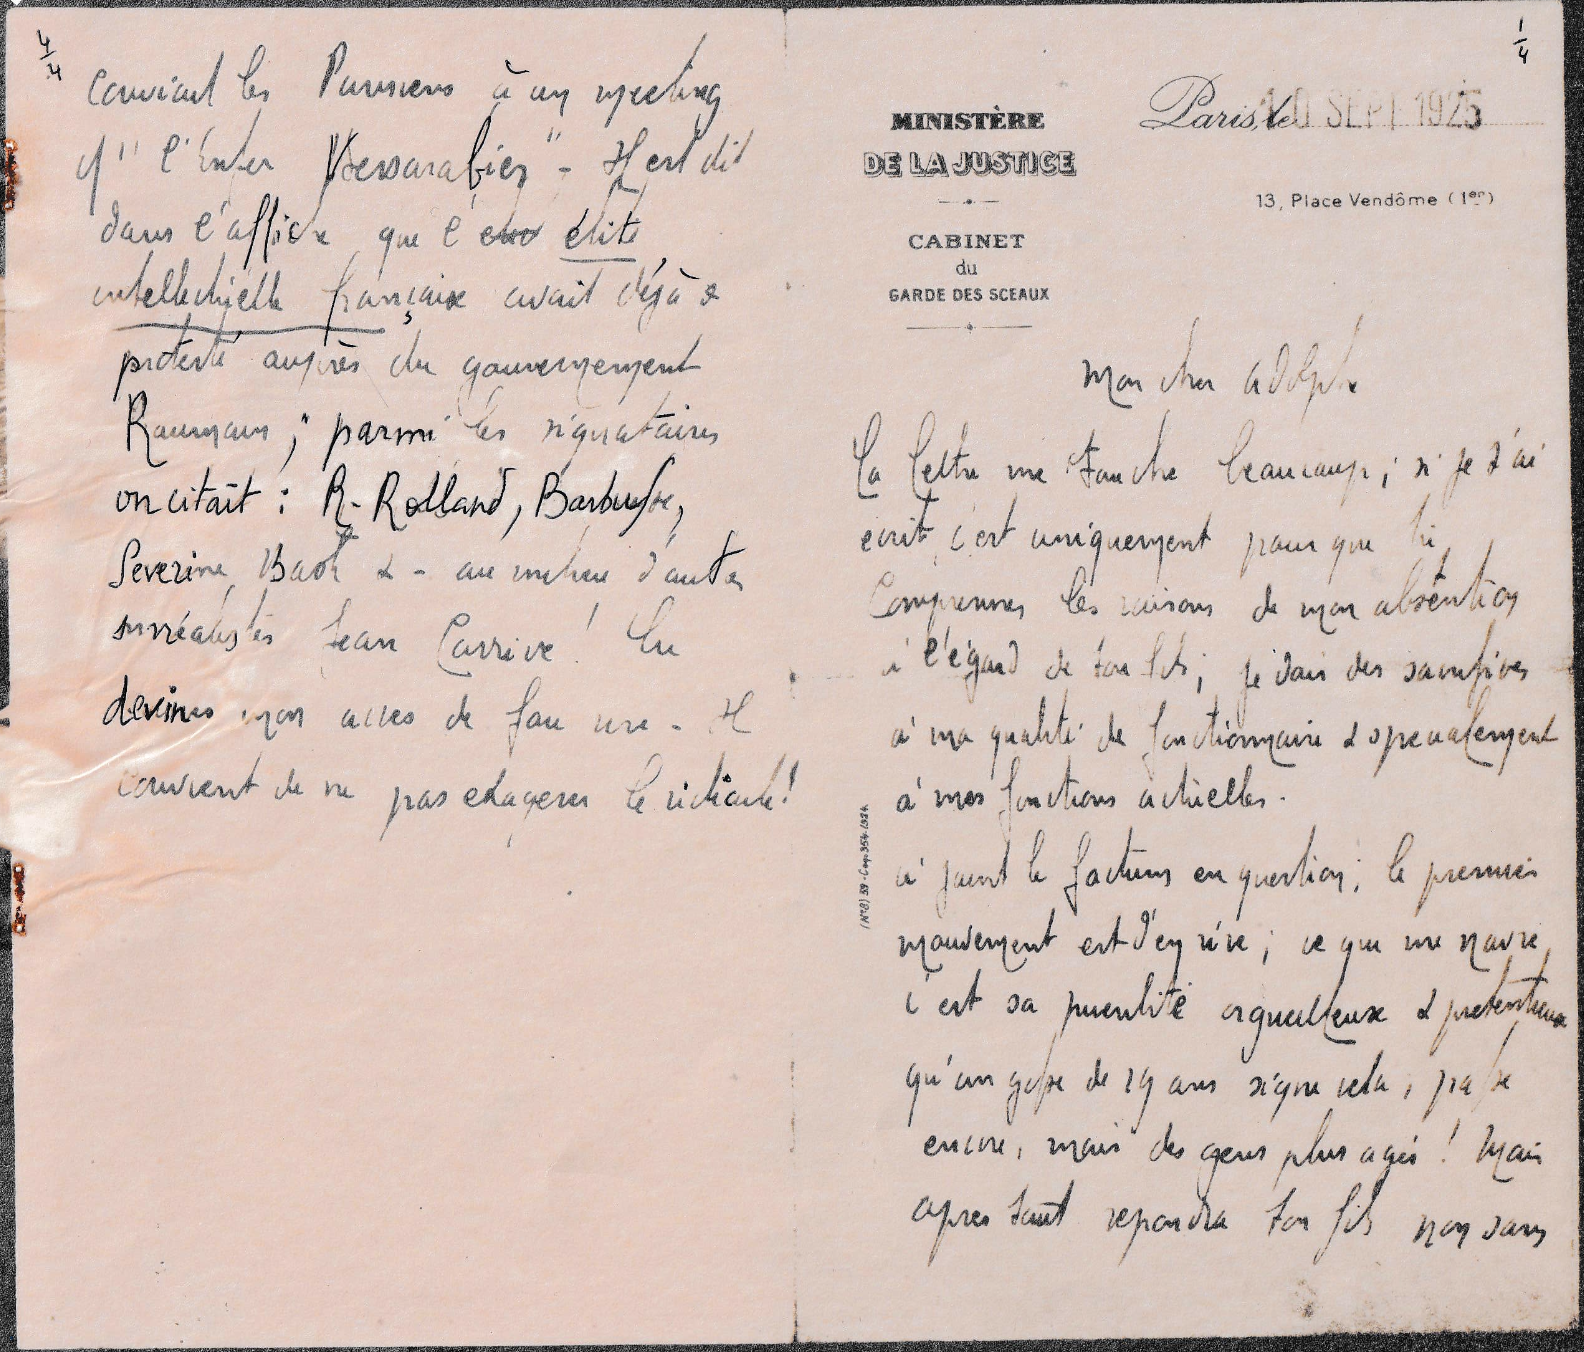 1/4
MINISTÈRE
DE LA JUSTICE
CABINET
du
GARDE DES SCEAUX
Paris, le 10 SEPT 1925
13, Place Vendôme (1er)
Mon cher Adolphe
Ta lettre me touche beaucoup ; si je t'ai
écrit, c'est uniquement pour que tu
comprennes les raisons de mon abstention
à l'égard de ton fils ; je dois des sacrifices
à ma qualité de fonctionnaire & specialement
à mes fonctions actuelles.
ci joint le factum en question ; le premier
mouvement est d'en rire ; ce qui me navre,
c'est sa puerilité orgueilleuse & pretentieuse
qu'un gosse de 19 ans signe cela, passe
encore, mais des gens plus agés ! Mais
apres tout repondra ton fils non sans
(N° 8) 59 - Cop. 354-1924
4/4
conviant les Parisiens à un meeting
"l'Enfer Bessarabien" - Il est dit
dans l'affiche que l'élite
intellectuelle française avait déjà
protesté auprès du gouvernement
Roumain ; parmi les signataires
on citait : R. Rolland, Barbusse,
Severine, Bach & - au milieu d'autres
surréalistes Jean Carrive ! Tu
devines mon acces de fou rire - Il
convient de ne pas exagerer le ridicule !